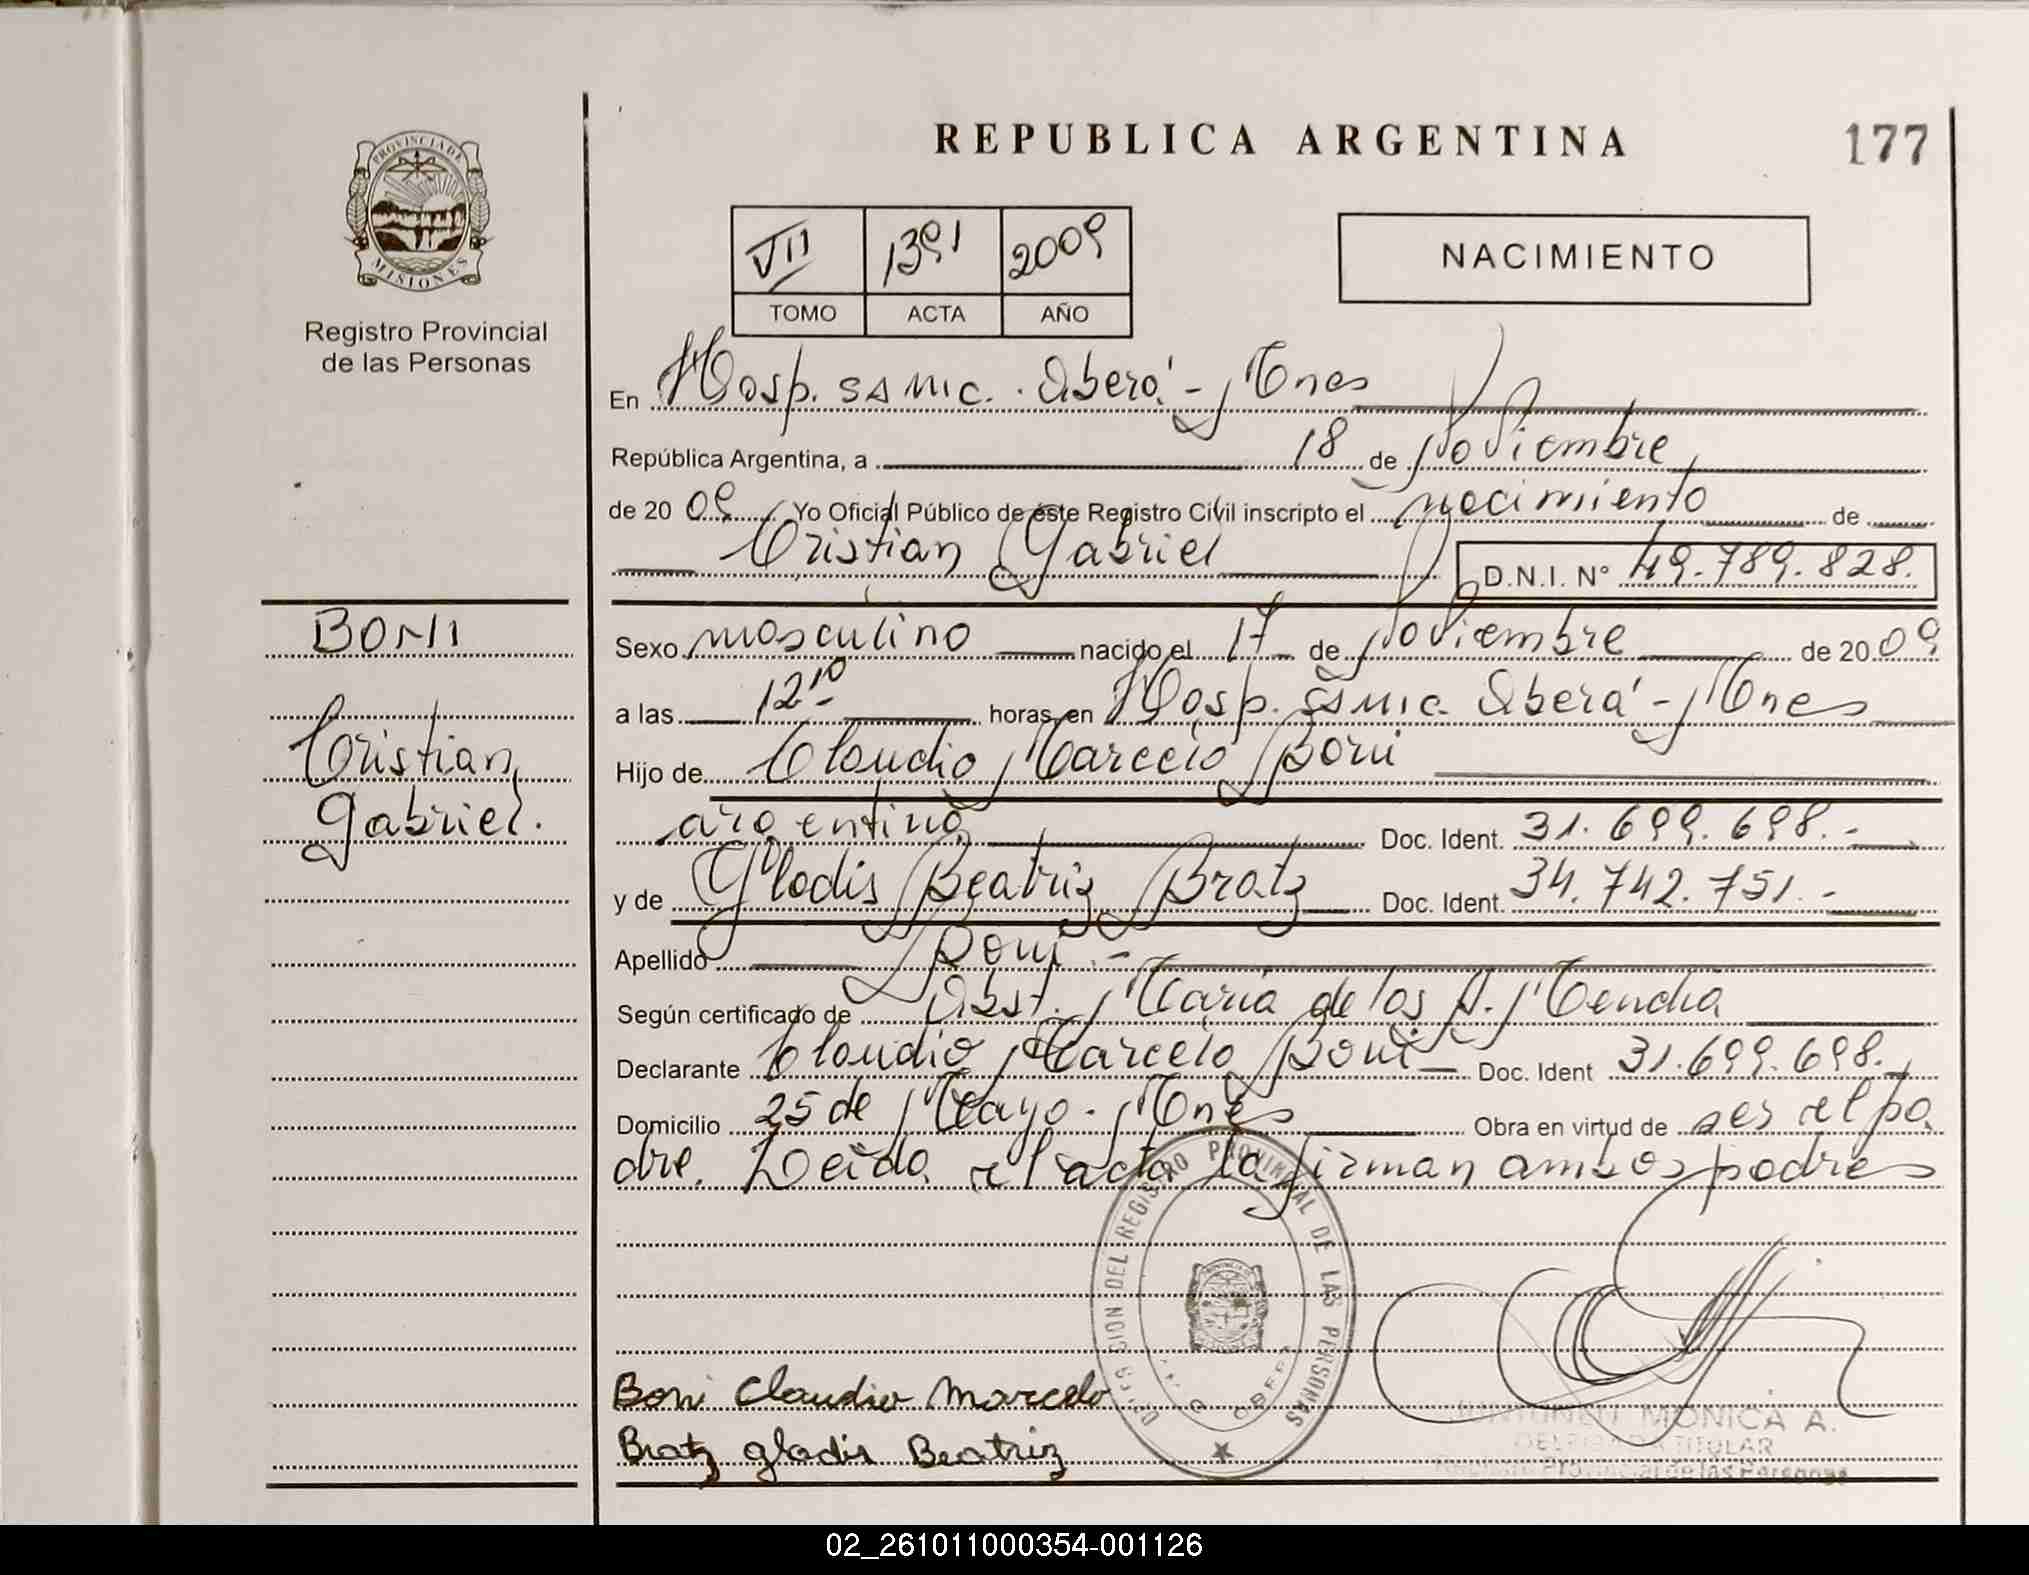 REPUBLICA ARGENTINA
177
PROVINCIA DE MISIONES
Registro Provincial
de las Personas
VII 1391 2009
TOMO ACTA AÑO
NACIMIENTO
En Hosp. SAMIC. Oberá - Mnes
República Argentina, a 18 de Noviembre
de 2009 Yo Oficial Público de este Registro Civil inscripto el nacimiento de
Cristian Gabriel D.N.I. Nº 49.789.828.
BONI
Cristian
Gabriel.
Sexo masculino nacido el 17 de Noviembre de 2009
a las 12 10 horas en Hosp. Samic Oberá - Mnes
Hijo de Claudio Marcelo Boni
argentino Doc. Ident. 31.699.698.-
y de Gladis Beatriz Bratz Doc. Ident. 34.742.751.-
Apellido Boni.-
Según certificado de Obst. María de los A. Mendia
Declarante Claudio Marcelo Boni Doc. Ident 31.699.698.-
Domicilio 25 de Mayo. Mnes Obra en virtud de ser el pa
dre. Leída el acta la firman ambos padres
REGISTRO PROVINCIAL DE LAS PERSONAS
Boni Claudio Marcelo
Bratz gladis Beatriz
MONICA A.
TITULAR
Registro Provincial de las Personas
02_261011000354-001126